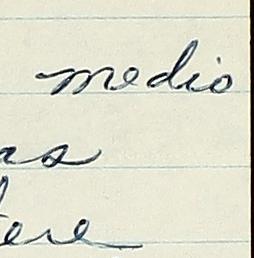 medio
as
tere